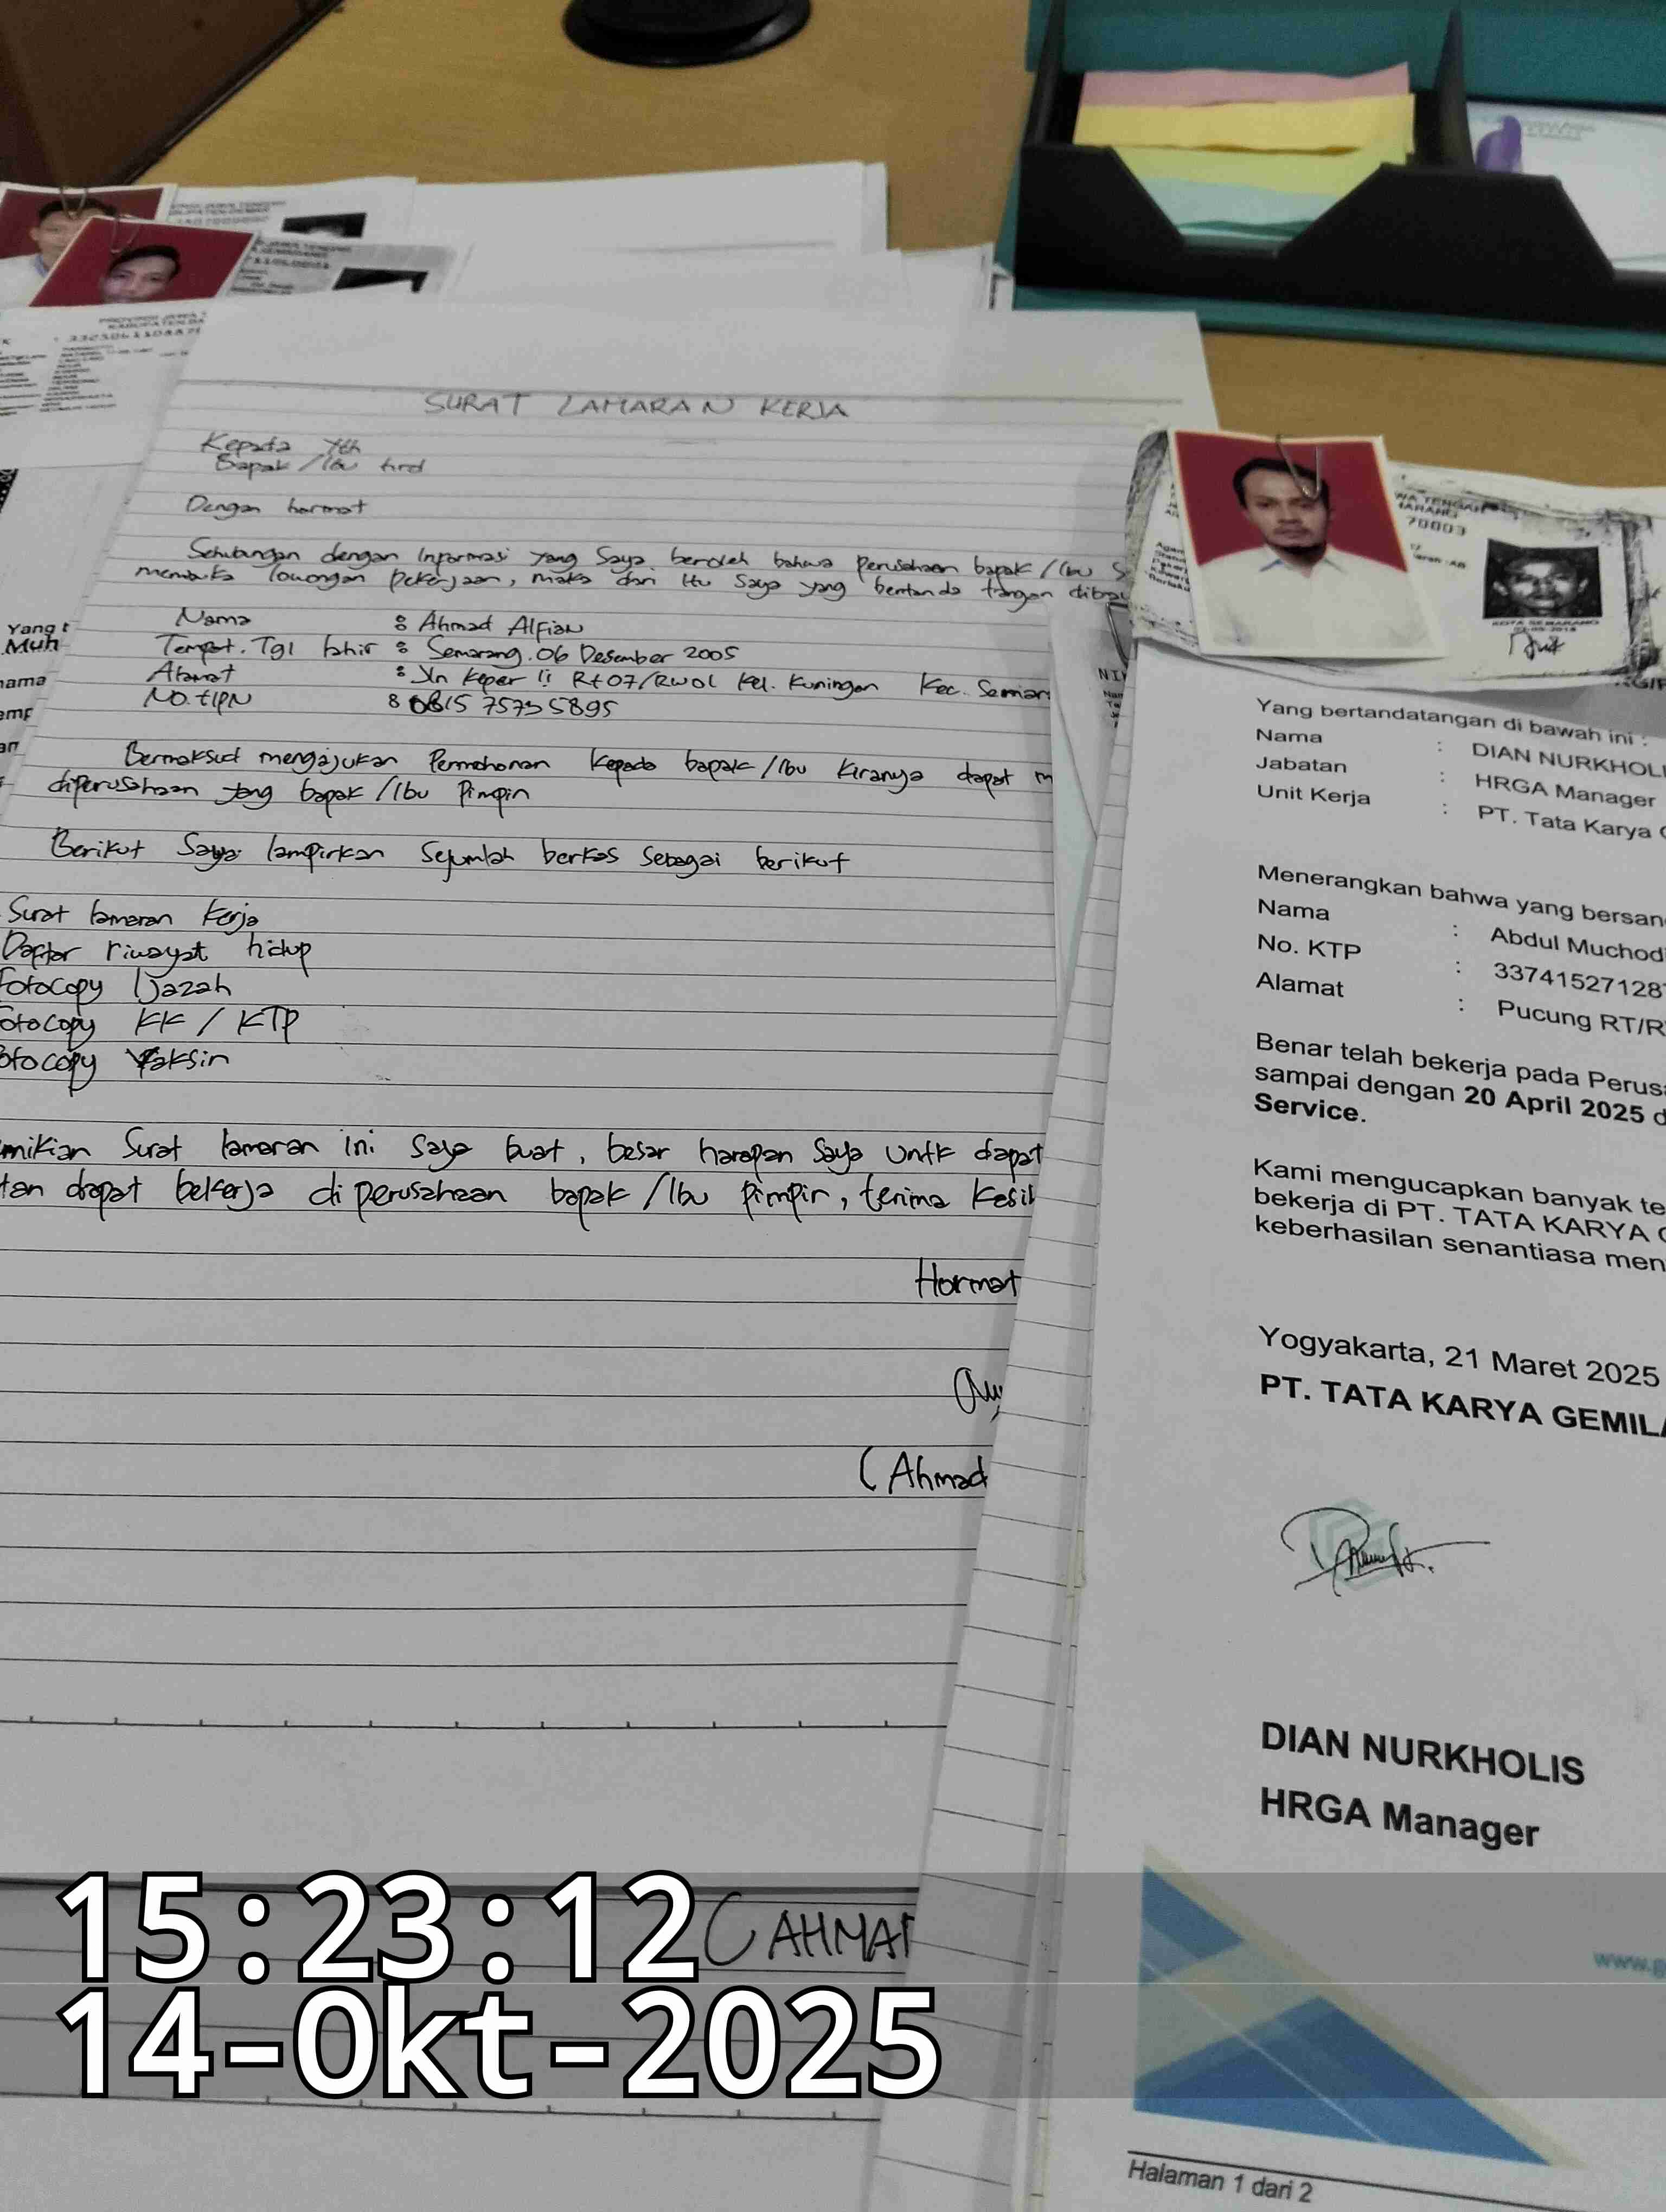 SURAT LAMARAN KERJA
Kepada Yth
Bapak / Ibu hrd
Dengan hormat
Sehubungan dengan Informasi yang Saya beroleh bahwa perusahaan bapak / Ibu S
membuka lowongan pekerjaan, maka dari itu Saya yang bertanda tangan dibaw
Nama : Ahmad Alfian
Tempat. Tgl lahir : Semarang. 06 Desember 2005
Alamat : Jln Keper II Rt 07/RW01 Kel. Kuningan Kec. Semar
No. tlpn : 0815 7573 5895
Bermaksud mengajukan Permohonan Kepada bapak / Ibu Kiranya dapat m
diperusahaan yang bapak / Ibu Pimpin
Berikut Saya lampirkan Sejumlah berkas Sebagai berikut
Surat lamaran Kerja
Daftar riwayat hidup
Fotocopy Ijazah
otocopy KK / KTP
otocopy Vaksin
mikian Surat lamaran ini Saya buat, besar harapan Saya untk dapat
tan dapat bekerja di perusahaan bapak / Ibu Pimpin, terima Kasih
Hormat
(Ahmad
(AHMAD
Yang t
Muh
ama
emp
PROVINSI JAWA T
WA TENGAH
ARANG
70003
KOTA SEMARANG
NI
Yang bertandatangan di bawah ini :
Nama : DIAN NURKHOLI
Jabatan : HRGA Manager
Unit Kerja : PT. Tata Karya G
Menerangkan bahwa yang bersan
Nama : Abdul Muchod
No. KTP : 33741527128
Alamat : Pucung RT/R
Benar telah bekerja pada Perusa
sampai dengan 20 April 2025 d
Service.
Kami mengucapkan banyak te
bekerja di PT. TATA KARYA G
keberhasilan senantiasa men
Yogyakarta, 21 Maret 2025
PT. TATA KARYA GEMILA
DIAN NURKHOLIS
HRGA Manager
www.g
Halaman 1 dari 2
15:23:12
14-Okt-2025